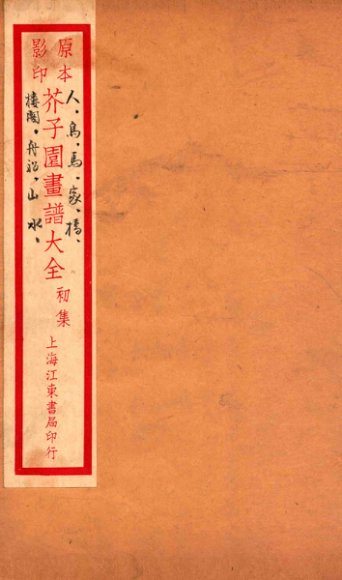 原本
影印
芥子園畫譜大全
初集
上海江東書局印行
人、鳥、馬、家、橋、
樓閣、舟船、山水、